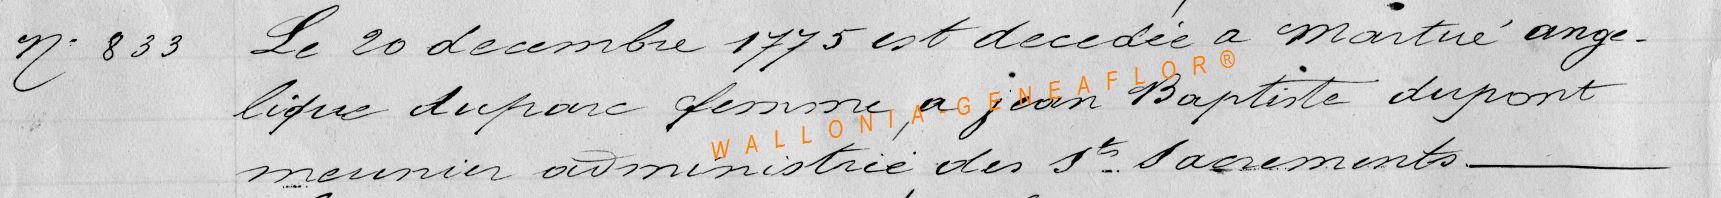 N° 833 Le 20 decembre 1775 est decedée a Martué ange-
lique duparc femme, a jean Baptiste dupont
meunier administrée des Sts Sacrements.
WALLONIA-GENEAFLOR®